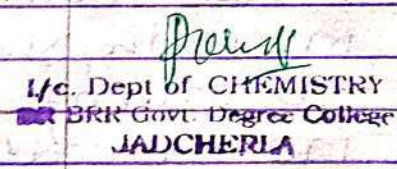 I/c. Dept of CHEMISTRY
BRR Govt. Degree College
JADCHERLA